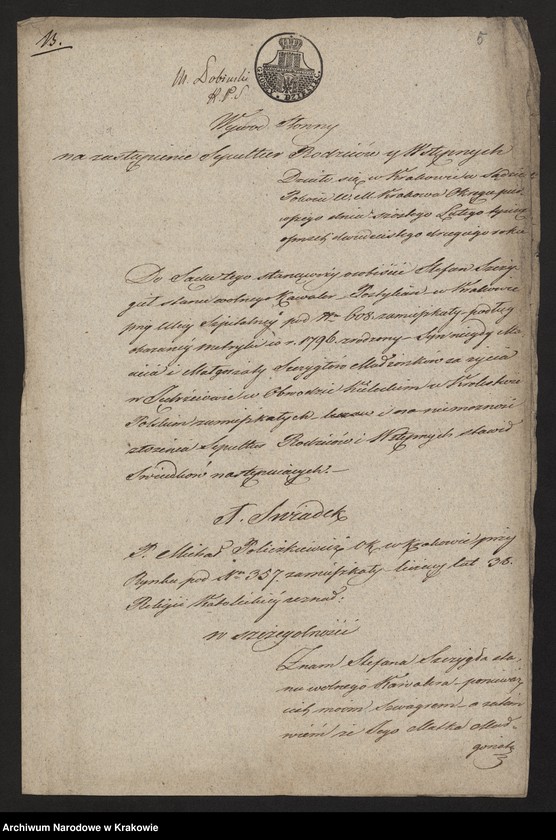 13.
5
M. Dobinski
K.P.S
GROSZY DZIESIĘĆ
Wywod Słonny
na zastąpienie Sepultur Rodziców y Wstępnych
Działo się w Krakowie w Sądzie
Pokoiu W. M. Krakowa Okręgu pier-
wszego dnia szóstego Lutego tysiąc
ośmset dwudziestego drugiego roku
Do Sądu tego stanąwszy osobiście Stefan Szczy-
gieł stanu wolnego Kawaler Postylian w Krakowie
przy Ulicy Szpitalney pod Nr 608. zamieszkały podług
okazaney metryki w r. 1796. zrodzony Syn niegdy Ma-
cieia i Małgorzaty Szczygłów Małżonków za życia
w Jędrzeiowie w Obwodzie Kieleckim w Królestwie
Polskim zamieszkałych i na niemożność
złożenia Sepultur Rodziców i Wstępnych stawił
Świadków następuiących.—
I. Swiadek
P. Michał Policzkiewicz Ok. w Krakowie przy
Rynku pod Nro 357. zamieszkały liczący lat 36.
Religii Katolickiey zeznał:
w szczególności
Znam Stefana Szczygła sta-
nu wolnego Kawalera ponieważ
iest moim Szwagrem a zatem
wiem że Jego Matka Mał-
gorzata
Archiwum Narodowe w Krakowie